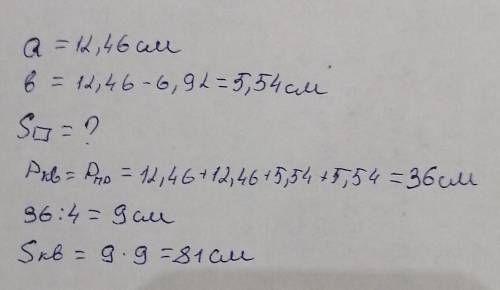 a = 12,46 см
в = 12,46 - 6,92 = 5,54 см
S□ = ?
Ркв = Рпр = 12,46 + 12,46 + 5,54 + 5,54 = 36 см
36 : 4 = 9 см
Sкв = 9 · 9 = 81 см